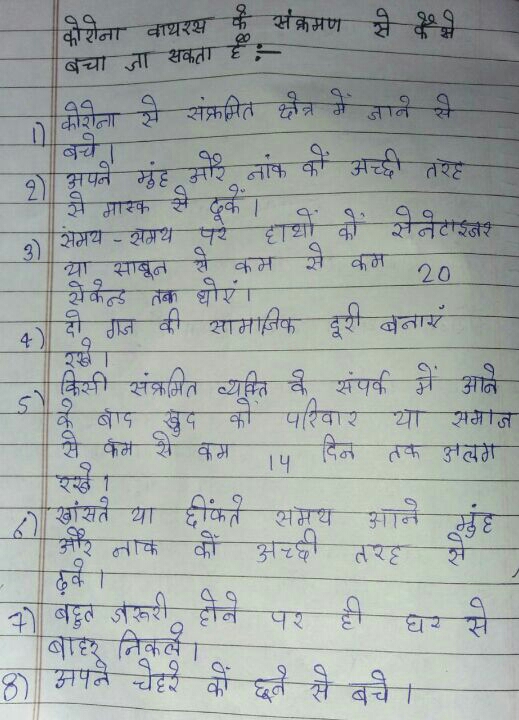 कोरोना वायरस के संक्रमण से कैसे
बचा जा सकता हैं :-
1) कोरोना से संक्रमित क्षेत्र में जाने से
बचे।
2) अपने मुंह और नांक कों अच्छी तरह
से मास्क से ढूकें।
3) समय - समय पर हाथों कों सेनेटाइजर
या साबून से कम से कम 20
सेकेन्ड तक धोएं।
4) दो गज की सामाजिक दूरी बनाएं
रखे।
5) किसी संक्रमित व्यक्ति के संपर्क में आने
के बाद खुद कों परिवार या समाज
से कम से कम 14 दिन तक अलग
रखे।
6) खांसते या छींकते समय आने मुंह
और नाक कों अच्छी तरह से
ढ़के।
7) बहुत जरूरी होने पर ही घर से
बाहर निकले।
8) अपने चेहरे कों छूने से बचे।